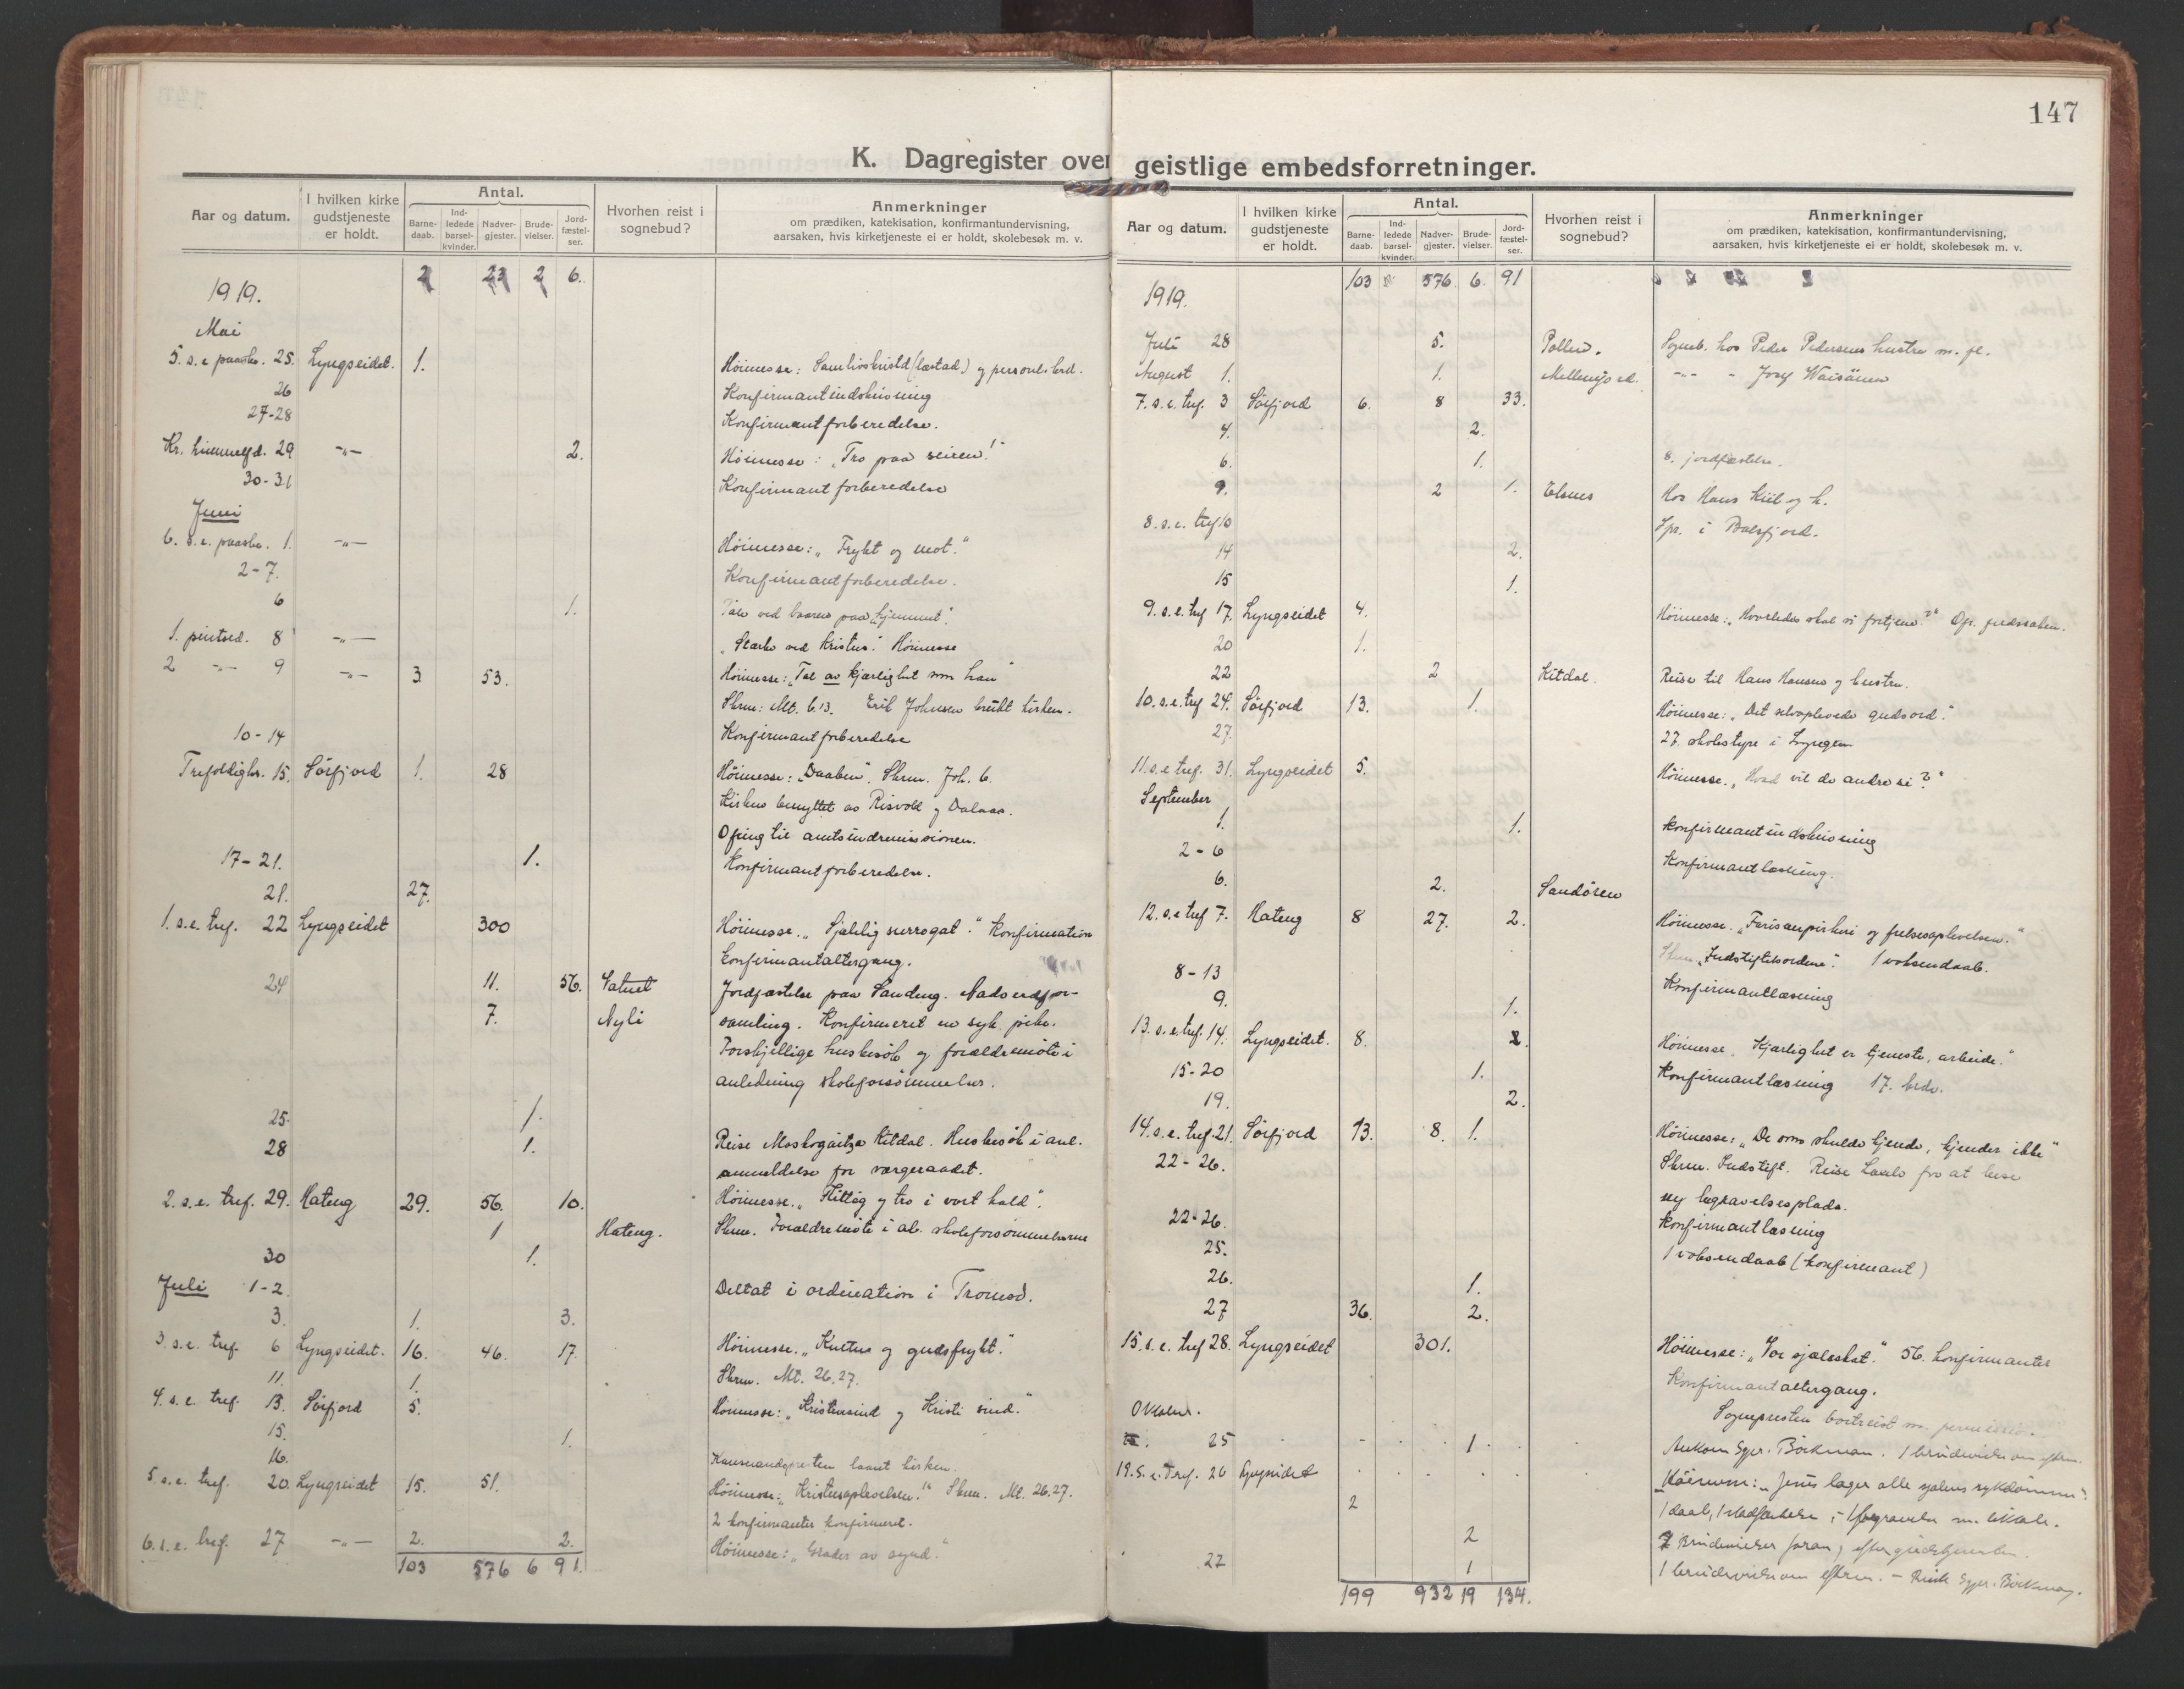 147
K. Dagregister over geistlige embedsforretninger.
Aar og datum.
I hvilken kirke gudstjeneste er holdt.
Antal.
Barne-daab.
Ind-ledede barsel-kvinder.
Nadver-gjester.
Brude-vielser.
Jord-fæstel-ser.
Hvorhen reist i sognebud?
Anmerkninger
om prædiken, katekisation, konfirmantundervisning,
aarsaken, hvis kirketjeneste ei er holdt, skolebesøk m. v.
1919. 6.
Mai
5. s. e. paaske. 25. Lyngseidet. 1. Höimesse:
26 Konfirmantindskrivning
27-28 Konfirmantforberedelse.
Kr. himmelfd. 29 -"- 2. Höimesse: "Tro paa seiren!"
30-31 Konfirmantforberedelse
Juni
6. s. e. paaske. 1. -"- Höimesse: "Frykt og mot."
2-7. Konfirmantforberedelse.
6 1. Tale ved baaren paa "Hjemmet".
1. pintsed. 8 -"- "Stærke ved Kristus". Höimesse
2 -"- 9 -"- 3 53. Höimesse: "Tal av kjærlighet som han"
Skrm: Mt. 6.13. Erik Johnsen brukt kirken.
10-14 Konfirmantforberedelse
Trefoldighs. 15. Sörfjord 1. 28 Höimesse: "Daaben". Skrm. Joh. 6.
Kirken benyttet av Risvold og Dalaas.
Ofring til amtsindremissionen.
17-21. 1. Konfirmantforberedelse.
21. 27.
1. s. e. tref. 22 Lyngseidet 300 Höimesse. "Sjælelig surrogat". Konfirmation
Konfirmantaltergang.
24 11. 56. Jordfæstelse paa Sandeng.
7. Nyli samling. Konfirmeret en syk pike.
Forskjellige husbesök og forældremöte i
anledning skoleforsömmelser.
25. 1.
28 1. Reise Kitdal. Husbesök i anl.
anmeldelse for vergeraadet.
2. s. e. tref. 29. Hateng 29. 56. 10. Höimesse. og tro i vort kald".
1 Hateng. Skrm. Forældremöte i
30 1.
Juli 1-2 Deltat i ordination i Tromsö.
3. 1. 3.
3. s. e. tref. 6 Lyngseidet. 16. 46. 17. Höimesse. "Kultus og gudsfrykt."
11. 1. Skrm. Mt. 26,27.
4. s. e. tref. 13. Sörfjord 5. Höimesse: "Kristensind og Kristi sind."
15. 1.
16. laant kirken.
5. s. e. tref. 20. Lyngseidet 15. 51. Höimesse: "Kristusoplevelsen!" Skrm. Mt. 26,27.
2 konfirmanter konfirmeret.
6. s. e. tref. 27 -"- 2. 2. Höimesse: "Grader av synd."
103 576 6 91.
Aar og datum.
I hvilken kirke gudstjeneste er holdt.
Antal.
Barne-daab.
Ind-ledede barsel-kvinder.
Nadver-gjester.
Brude-vielser.
Jord-fæstel-ser.
Hvorhen reist i sognebud?
Anmerkninger
om prædiken, katekisation, konfirmantundervisning,
aarsaken, hvis kirketjeneste ei er holdt, skolebesøk m. v.
1919. 103 576. 6. 91
Juli 28 5. Pollen. Sogneb. hos Peder Pedersens hustru m. fl.
August 1. 1. -"- " Josef Waisänen
7. s. e. tref. 3 Sörfjord 6. 8 33.
4. 2.
6. 1. 8. jordfæstelse.
9. 2 1. Elsnes Hos Hans Kiil og h.
8. s. e. tref 10 Spr. i Balsfjord.
14 2.
15 1.
9. s. e. tref 17. Lyngseidet 4. Höimesse: "Hvorledes skal vi fortjene?"
20 1.
22 2 Kitdal. Reise til Hans Hansen og hustru.
10. s. e. tref 24. Sörfjord 13. 1. Höimesse: "Det selvoplevede gudsord."
27. 27. skolestyre i Lyngen
11. s. e. tref. 31. Lyngseidet 5. Höimesse. "Hvad vil de andre si?"
September
1. 1. Konfirmantindskrivning
2-6 Konfirmantlæsning.
6. 2. Sandören
12. s. e. tref 7. Hateng 8 27. 2. Höimesse. "Farisæerpiskeri og frelsesoplevelsen."
Skrm. "Indstiftelsordene". 1 voksendaab.
8-13 Konfirmantlæsning
9. 1.
13. s. e. tref. 14. Lyngseidet. 8. Höimesse. "Kjærlighet er tjeneste, arbeide."
15-20 1. Konfirmantlæsning 17. brdv.
19. 2.
14. s. e. tref. 21. Sörfjord 13. 8. 1. Höimesse: "De som skulde kjende, kjender ikke"
22-26. Skrm. Indstift. Reise for at bese
ny begravelsesplads.
22-26. Konfirmantlæsning
25. 1 voksendaab (konfirmant)
26. 1.
27 36. 2.
15. s. e. tref 28. Lyngseidet 301. Höimesse: "Vor sjæleskat." 56. konfirmanter
Konfirmantaltergang.
Oktober. Sognepresten bortreist m. permission.
25 1 Ankom Sgpr. Böckman. 1 brudevielse om efterm.
19. s. e. Tref. 26 Lyngseidet Höimesse: "Jesus læger alle sjælens sykdomme".
2
2 2 Brudevielser foran, efter gudstjenesten.
27 1 1 brudevielse om efterm. - Reiste Sgpr. Böckman.
199 932 19 134.